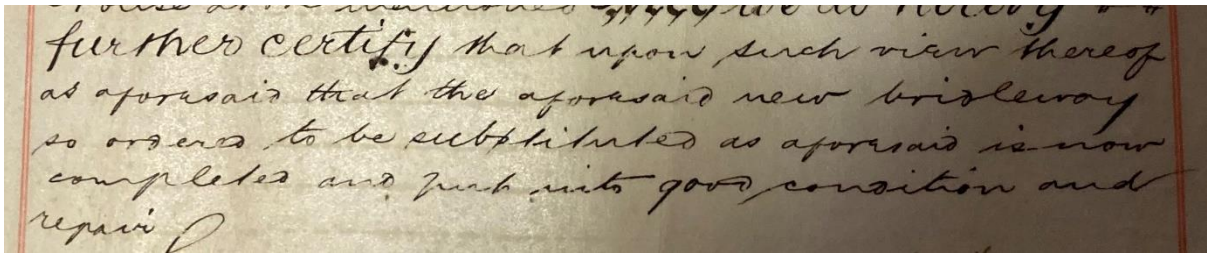 further certify that upon such view thereof
as aforesaid that the aforesaid new bridleway
so ordered to be substituted as aforesaid is now
completed and put into good condition and
repair